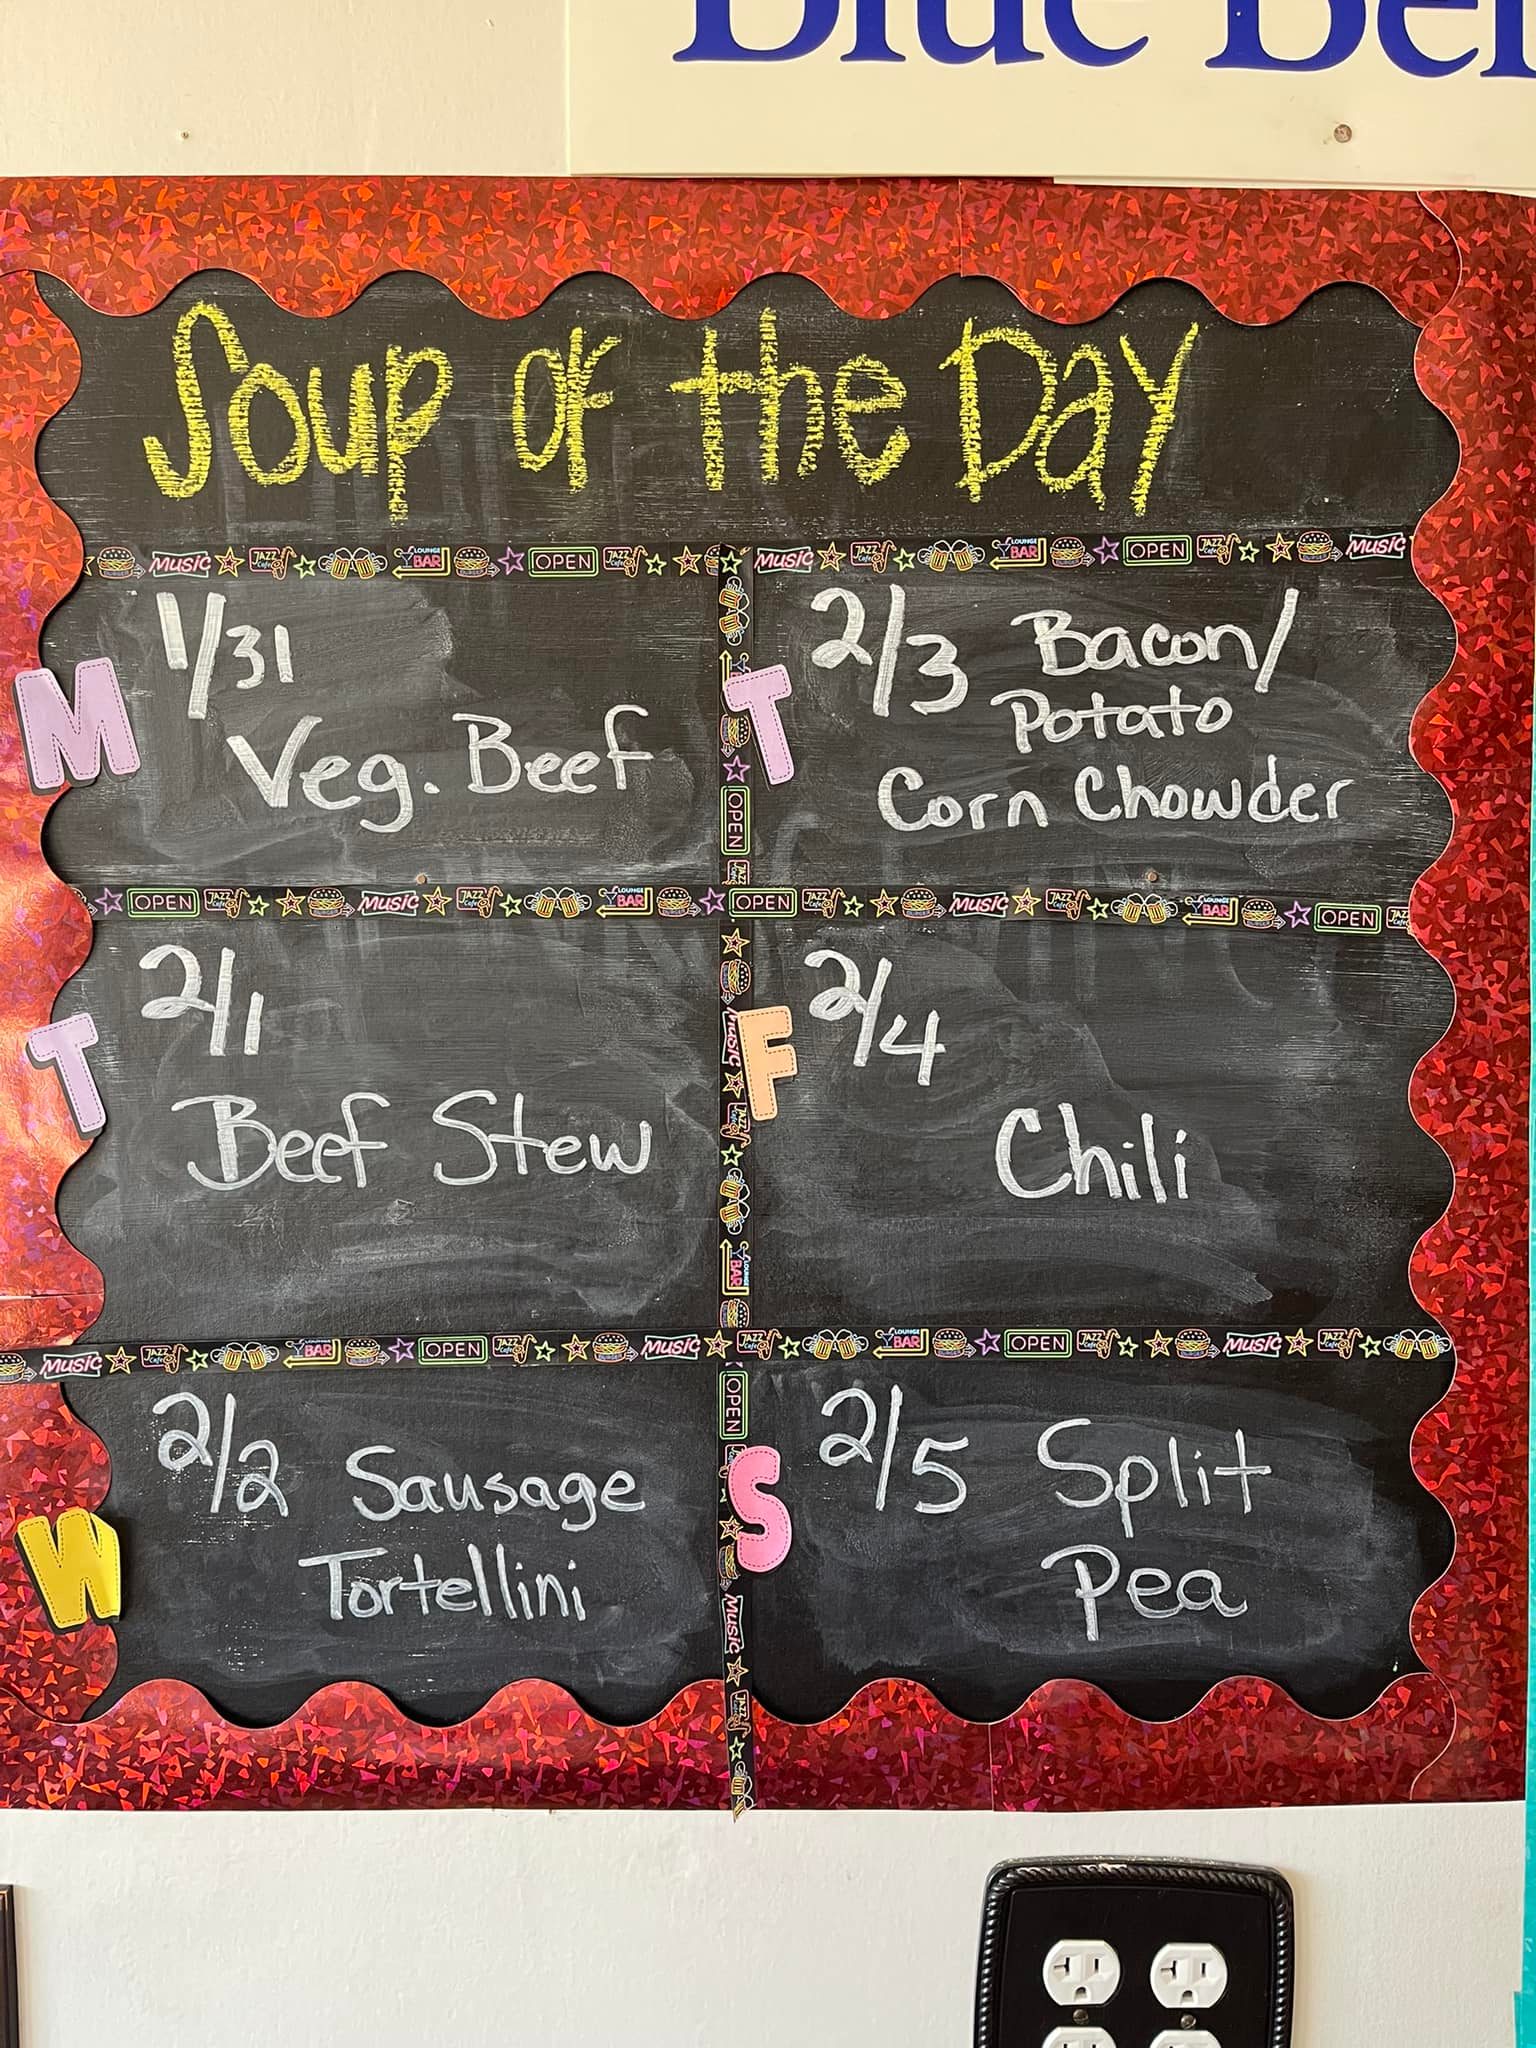 Blue Bel
Soup of the Day
M
1/31
Veg. Beef
T
2/1
Beef Stew
W
2/2 Sausage
Tortellini
T
2/3 Bacon/
Potato
Corn Chowder
F
2/4
Chili
S
2/5 Split
Pea
MUSIC
JAZZ
Cafe
LOUNGE
BAR
BURGER
OPEN